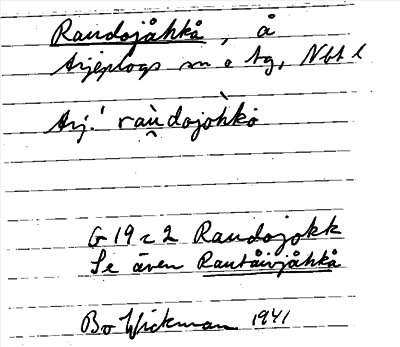 Raudojåhkå, å
Arjeplogs sn o tg, Nbt l
Arj. rau̯dojohkò
G 19 c 2 Raudojokk
Se även Rautåivjåhkå
Bo Wickman 1941